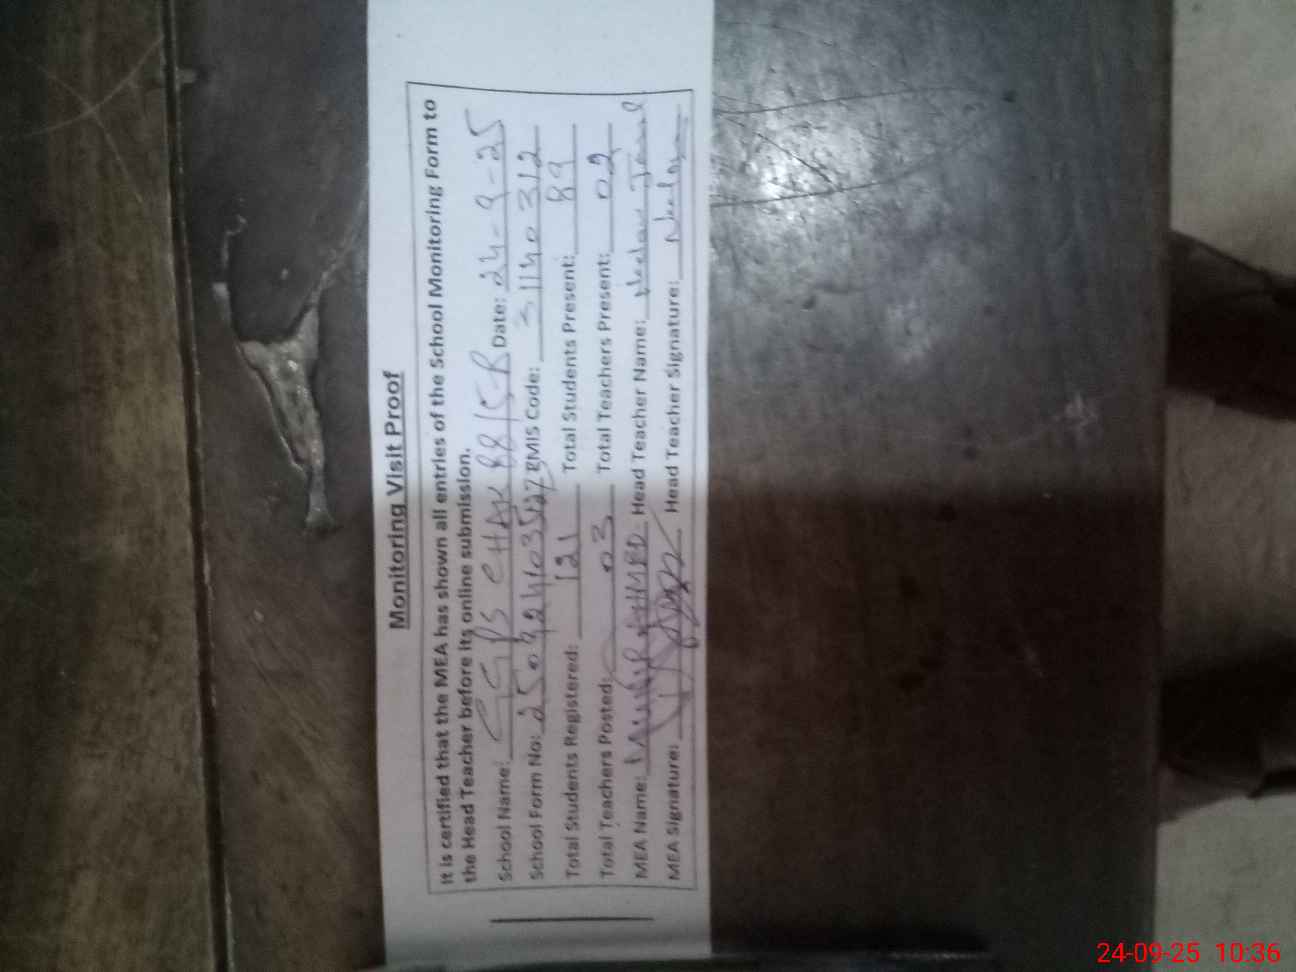 Monitoring Visit Proof
It is certified that the MEA has shown all entries of the School Monitoring Form to
the Head Teacher before its online submission.
School Name: GGPS CHAK 88/5R Date: 24-9-25
School Form No: EMIS Code: 31140312
Total Students Registered: 121 Total Students Present: 89
Total Teachers Posted: 03 Total Teachers Present: 02
MEA Name: AHMED Head Teacher Name:
MEA Signature: Head Teacher Signature:
24-09-25 10:36